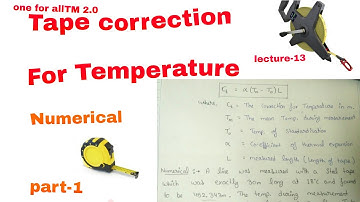 one for allTM 2.0
Tape correction
lecture-13
For Temperature
Numerical
part-1
Ct = α (Tm - To) L
where, Ct = The correction for Temperature in m.
Tm = The mean Temp. during measurement
To = Temp. of standardisation
α = Coefficient of thermal expansion
L = measured length (length of tape)
Numerical :- A line was measured with a steel tape
which was exactly 30m long at 18°C and found
to be 452.343m. The temp. during measurement